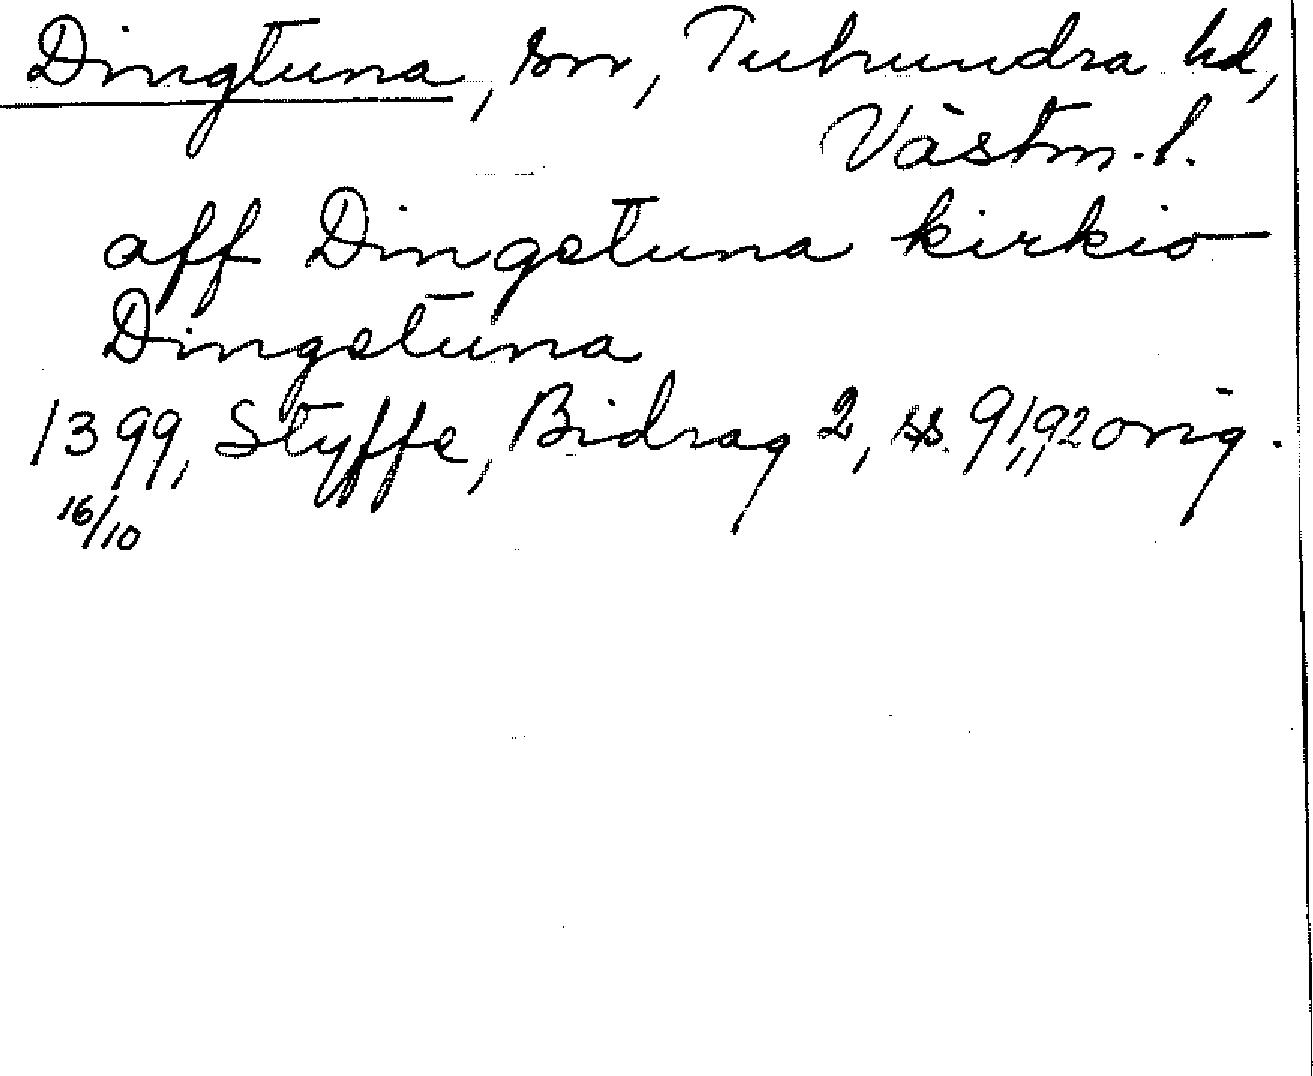 Dingtuna, sn, Tuhundra hd,
Västm. l.
aff Dingetuna kirkio
Dingetuna
1399, Styffe, Bidrag 2, ss. 91, 92 orig.
16/10